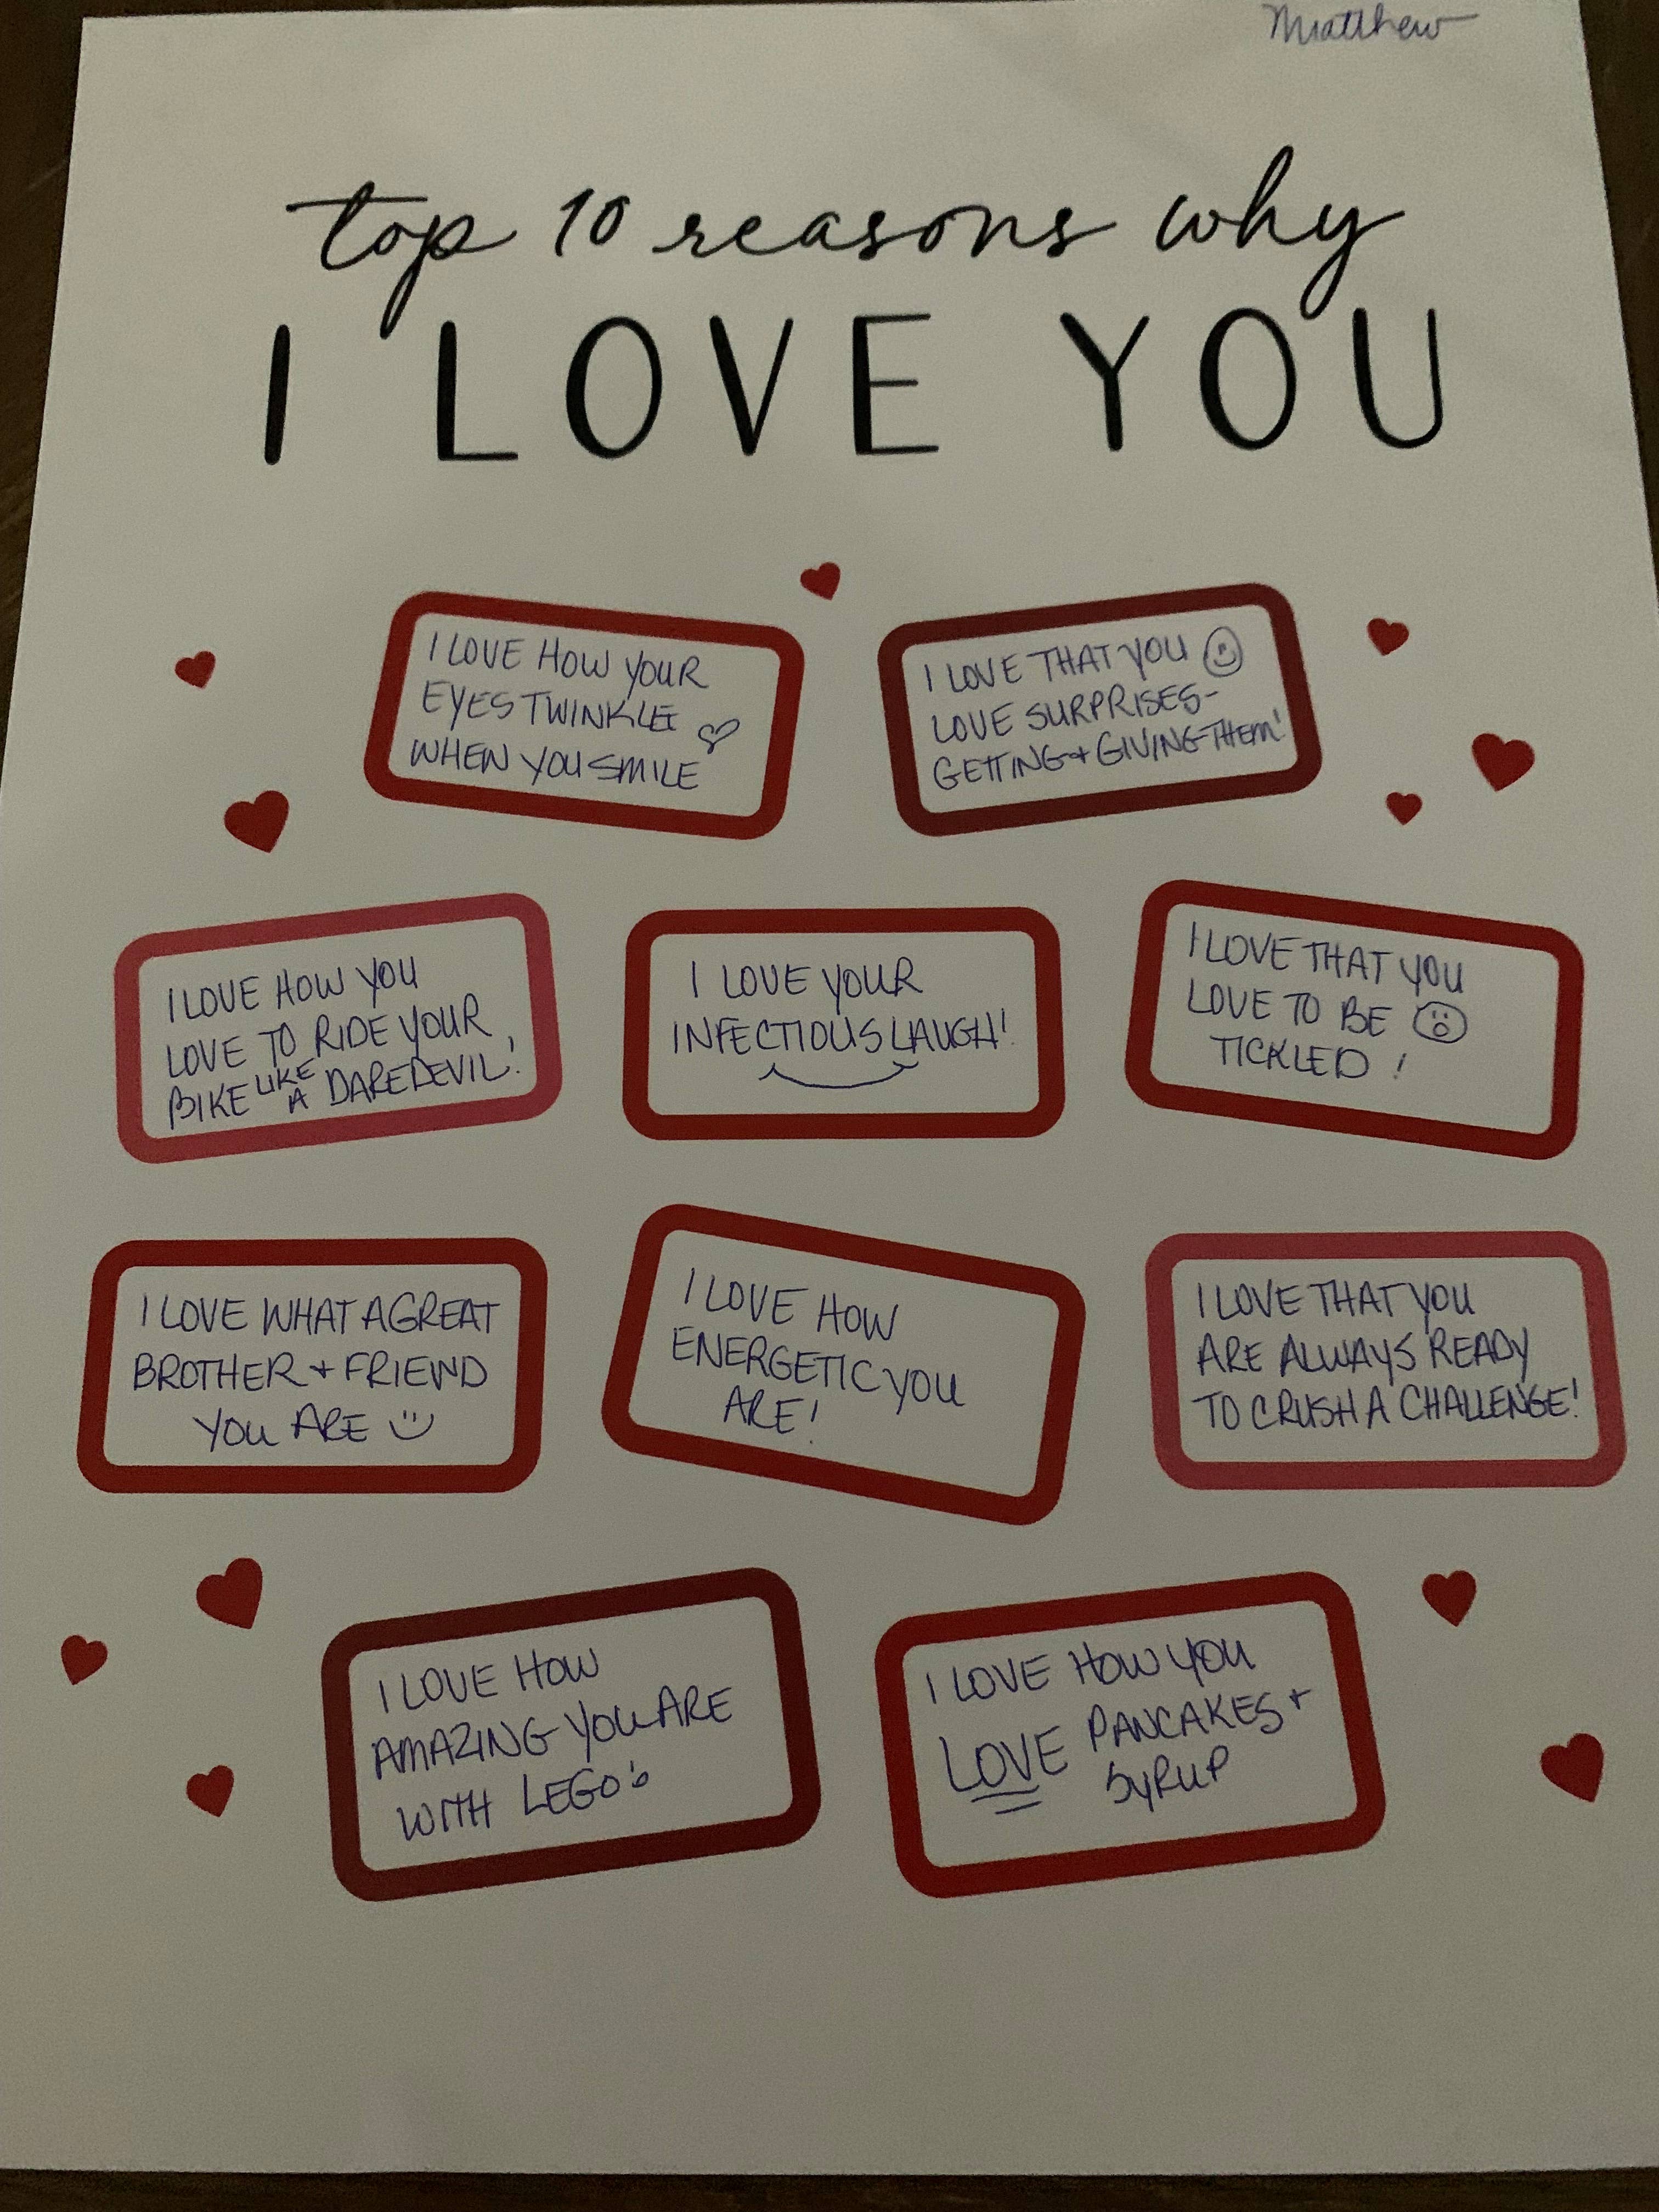 Matthew
top 10 reasons why
I LOVE YOU
I LOVE HOW YOUR
EYES TWINKLE
WHEN YOU SMILE
I LOVE THAT YOU
LOVE SURPRISES-
GETTING + GIVING THEM!
I LOVE HOW YOU
LOVE TO RIDE YOUR
BIKE LIKE A DAREDEVIL!
I LOVE YOUR
INFECTIOUS LAUGH!
I LOVE THAT YOU
LOVE TO BE
TICKLED!
I LOVE WHAT A GREAT
BROTHER + FRIEND
YOU ARE
I LOVE HOW
ENERGETIC YOU
ARE!
I LOVE THAT YOU
ARE ALWAYS READY
TO CRUSH A CHALLENGE!
I LOVE HOW
AMAZING YOU ARE
WITH LEGO's
I LOVE HOW YOU
LOVE PANCAKES +
SYRUP